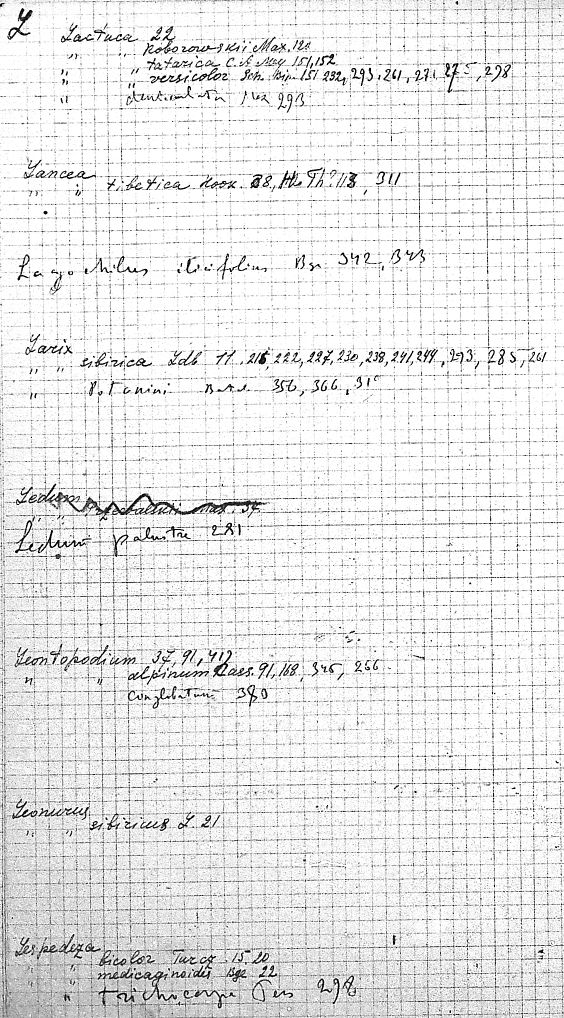 L
Lactuca 22
" " Roborowskii Max. 120
" " tatarica C.A. Mey 151, 152
" " versicolor Sch. Bip. 151, 232, 293, 261, 271, 298
" denticulata 293
Lancea
" " tibetica Hook. Th. 113, 311
Lagochilus ilicifolius Bge 342, 343
Larix
" " sibirica Ldb 11, 216, 222, 227, 230, 238, 241, 249, 293, 285, 261
" Potanini Batal. 356, 366
Ledum
Ledum palustre 281
Leontopodium 37, 91, 412
" " alpinum Cass. 91, 168, 345, 266
conglobatum 380
Leonurus
" " sibiricus L. 21
Lespedeza
" " bicolor Turcz. 15. 20
" " medicaginoides Bge 22
" trichocarpa Pers 298